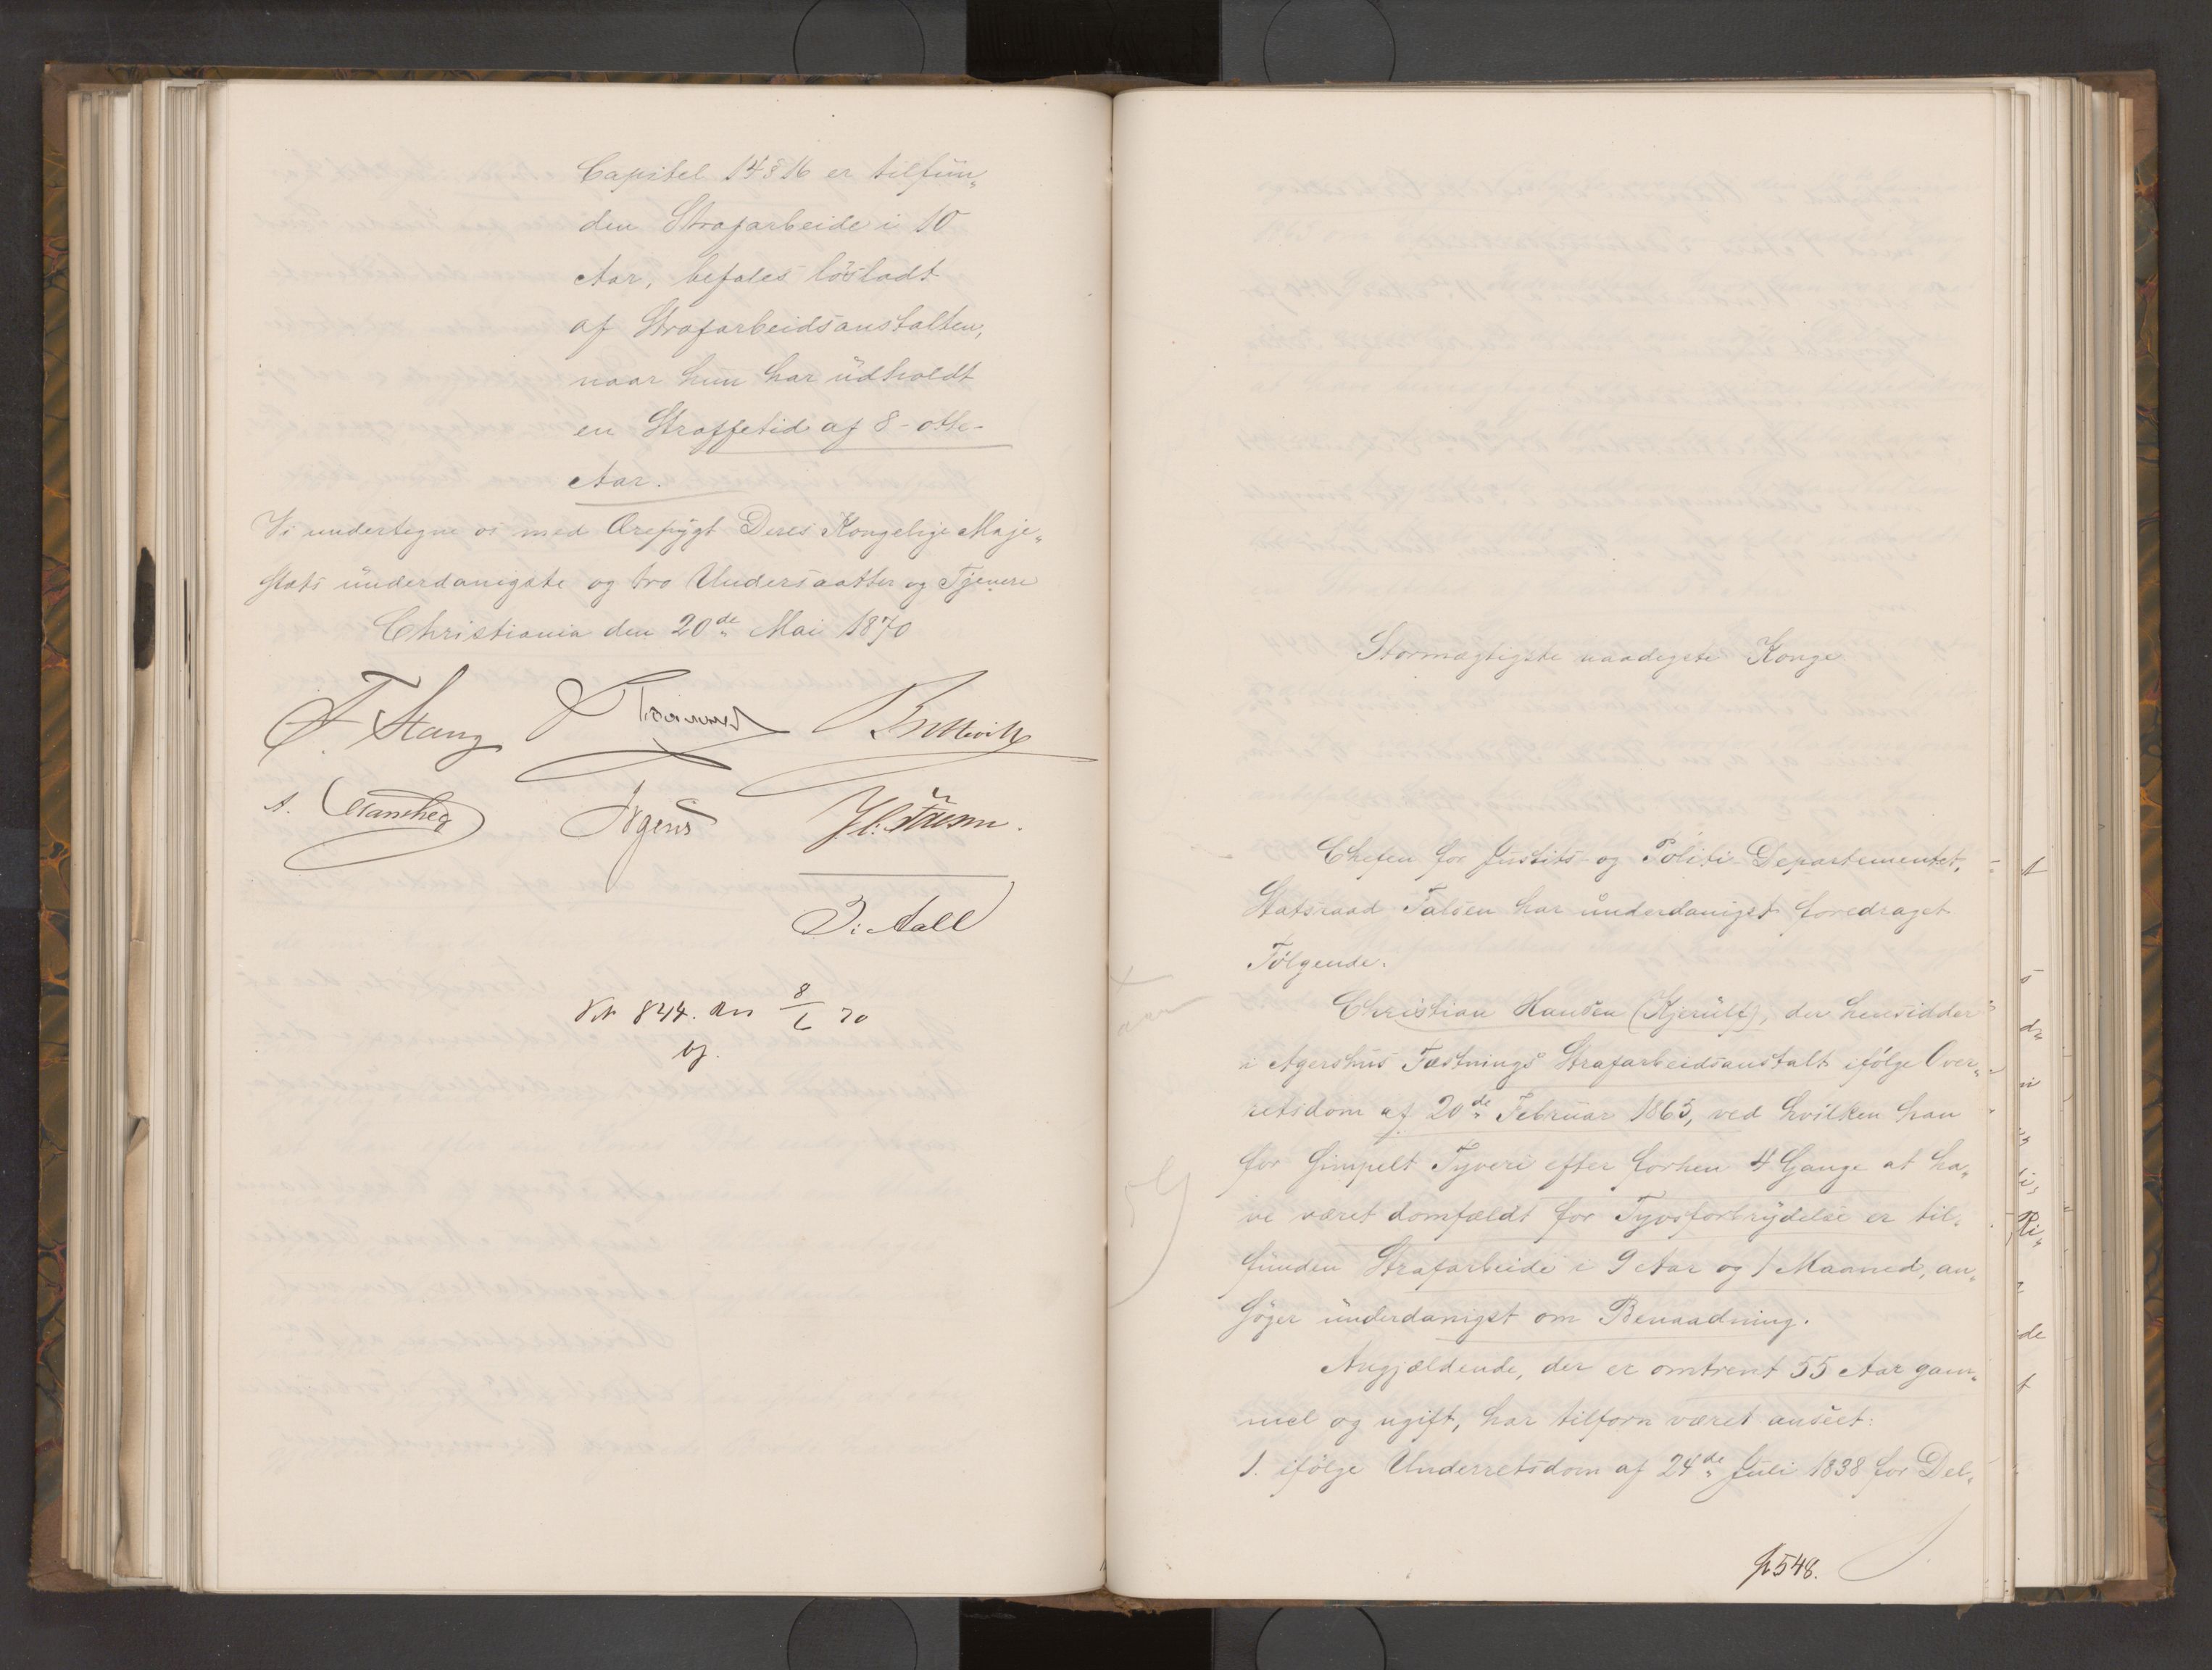 Capitel 14 § 16 er tilfun„
den Strafarbeide i 10
Aar, befales lösladt
af Strafarbeidsanstalten,
naar hun har udholdt
en Straffetid af 8 - otte -
Aar.
Vi undertegne os med Ærefrygt Deres Kongelige Maje„
stæts underdanigste og tro Undersaatter og Tjenere
Christiania den 20de Mai 1870
F. Stang
Bretteville
Irgens
J. Aall
844. 8/6 70
Stormægtigste naadigste Konge
Chefen for Justits- og Politi-Departementet,
Statsraad Falsen har underdanigst foredraget
Fölgende.
Christian Hansen (Kjerulf), der hensidder
i Agershus Fæstnings Strafarbeidsanstalt ifölge Over„
retsdom af 20de Februar 1865, ved hvilken han
for simpelt Tyveri efter forhen 4 Gange at ha„
ve været domfældt for Tyvsforbrydelse er til„
funden Strafarbeide i 9 Aar og 1 Maaned, an„
söger underdanigst om Benaadning.
Angjældende, der er omtrent 55 Aar gam„
mel og ugift, har tilforn været anseet:
1. ifölge Underretsdom af 24de Juli 1838 for Del„
548.